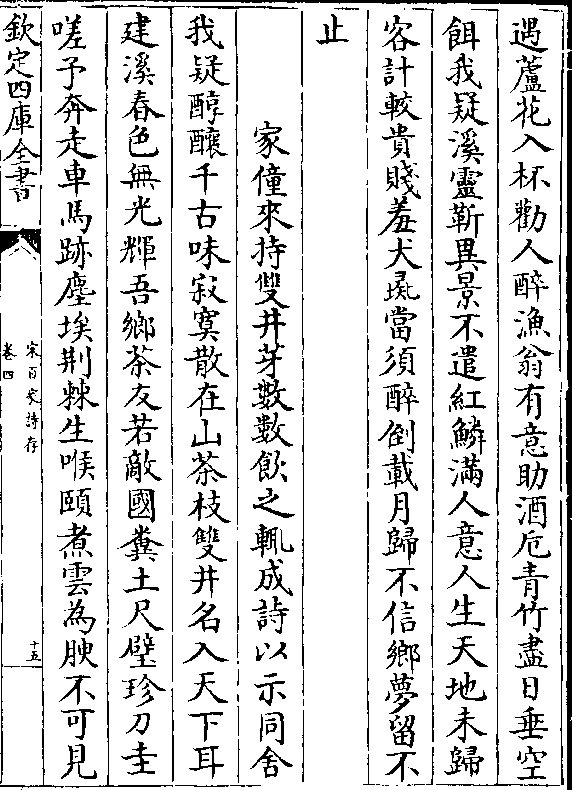 遇蘆花入杯勸人醉漁翁有意助酒巵青竹盡日垂空
餌我疑溪靈靳異景不遣紅鱗滿人意人生天地未歸
客計較貴賤羞犬彘當須醉倒載月歸不信鄉夢留不
止
家僮來持雙井芽數數飲之輒成詩以示同舍
我疑醇釀千古味寂寞散在山茶枝雙井名入天下耳
建溪春色無光輝吾鄉茶友若敵國糞土尺璧珍刀圭
嗟予奔走車馬跡塵埃荆棘生喉頤煮雲為腴不可見
欽定四庫全書
宋百家詩存
卷四
十五